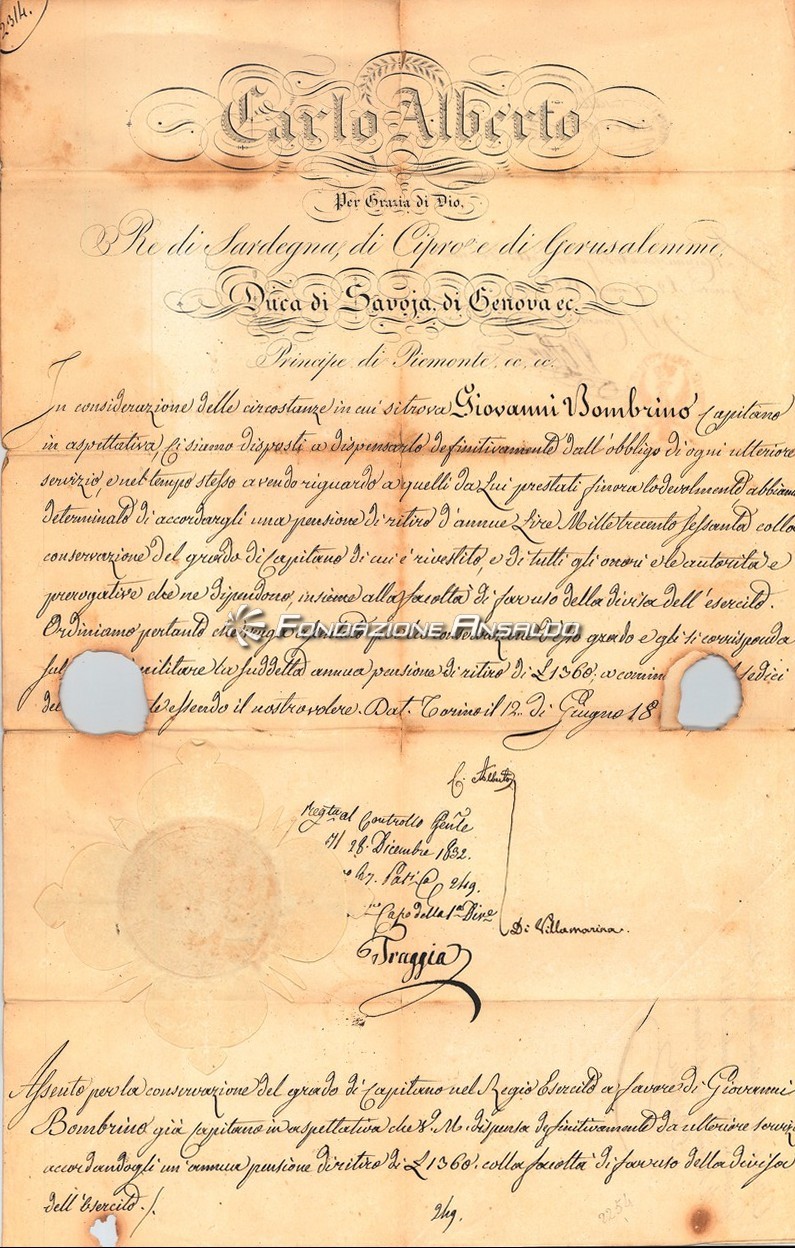 2314.
Carlo Alberto
Per Grazia di Dio,
Re di Sardegna, di Cipro e di Gerusalemme,
Duca di Savoja, di Genova ec.
Principe di Piemonte, ec. ec.
In considerazione delle circostanze in cui si trova Giovanni Bombrino Capitano
in aspettativa Ci siamo disposti a dispensarlo definitivamente dall'obbligo di ogni ulteriore
servizio, e nel tempo stesso avendo riguardo a quelli da Lui prestati finora lodevolmente abbiam
determinato di accordargli una pensione di ritiro d'annue Lire Mille trecento sessanta colla
conservazione del grado di Capitano di cui è rivestito, e di tutti gli onori e le autorità e
prerogative che ne dipendono, insieme alla facoltà di far uso della divisa dell'esercito.
Ordiniamo pertanto che conservazione grado e gli si corrisponda
FONDAZIONE ANSALDO
militare la suddetta annua pensione di ritiro di £ 1360, a comin sedici
essendo il nostro volere. Dat. Torino il 12. di Giugno 18
C. Alberto
Reg.ta al Controllo Gen.le
28. Dicembre 1832.
249.
Capo della 1.a Div.e
Di Villamarina.
Traggia
Assento per la conservazione del grado di Capitano nel Regio Esercito a favore di Giovanni
Bombrino già Capitano in aspettativa che V. M. dispensa definitivamente da ulteriore serviz
accordandogli un'annua pensione di ritiro di £ 1360. colla facoltà di far uso della divisa
dell'Esercito ./.
249.
2254